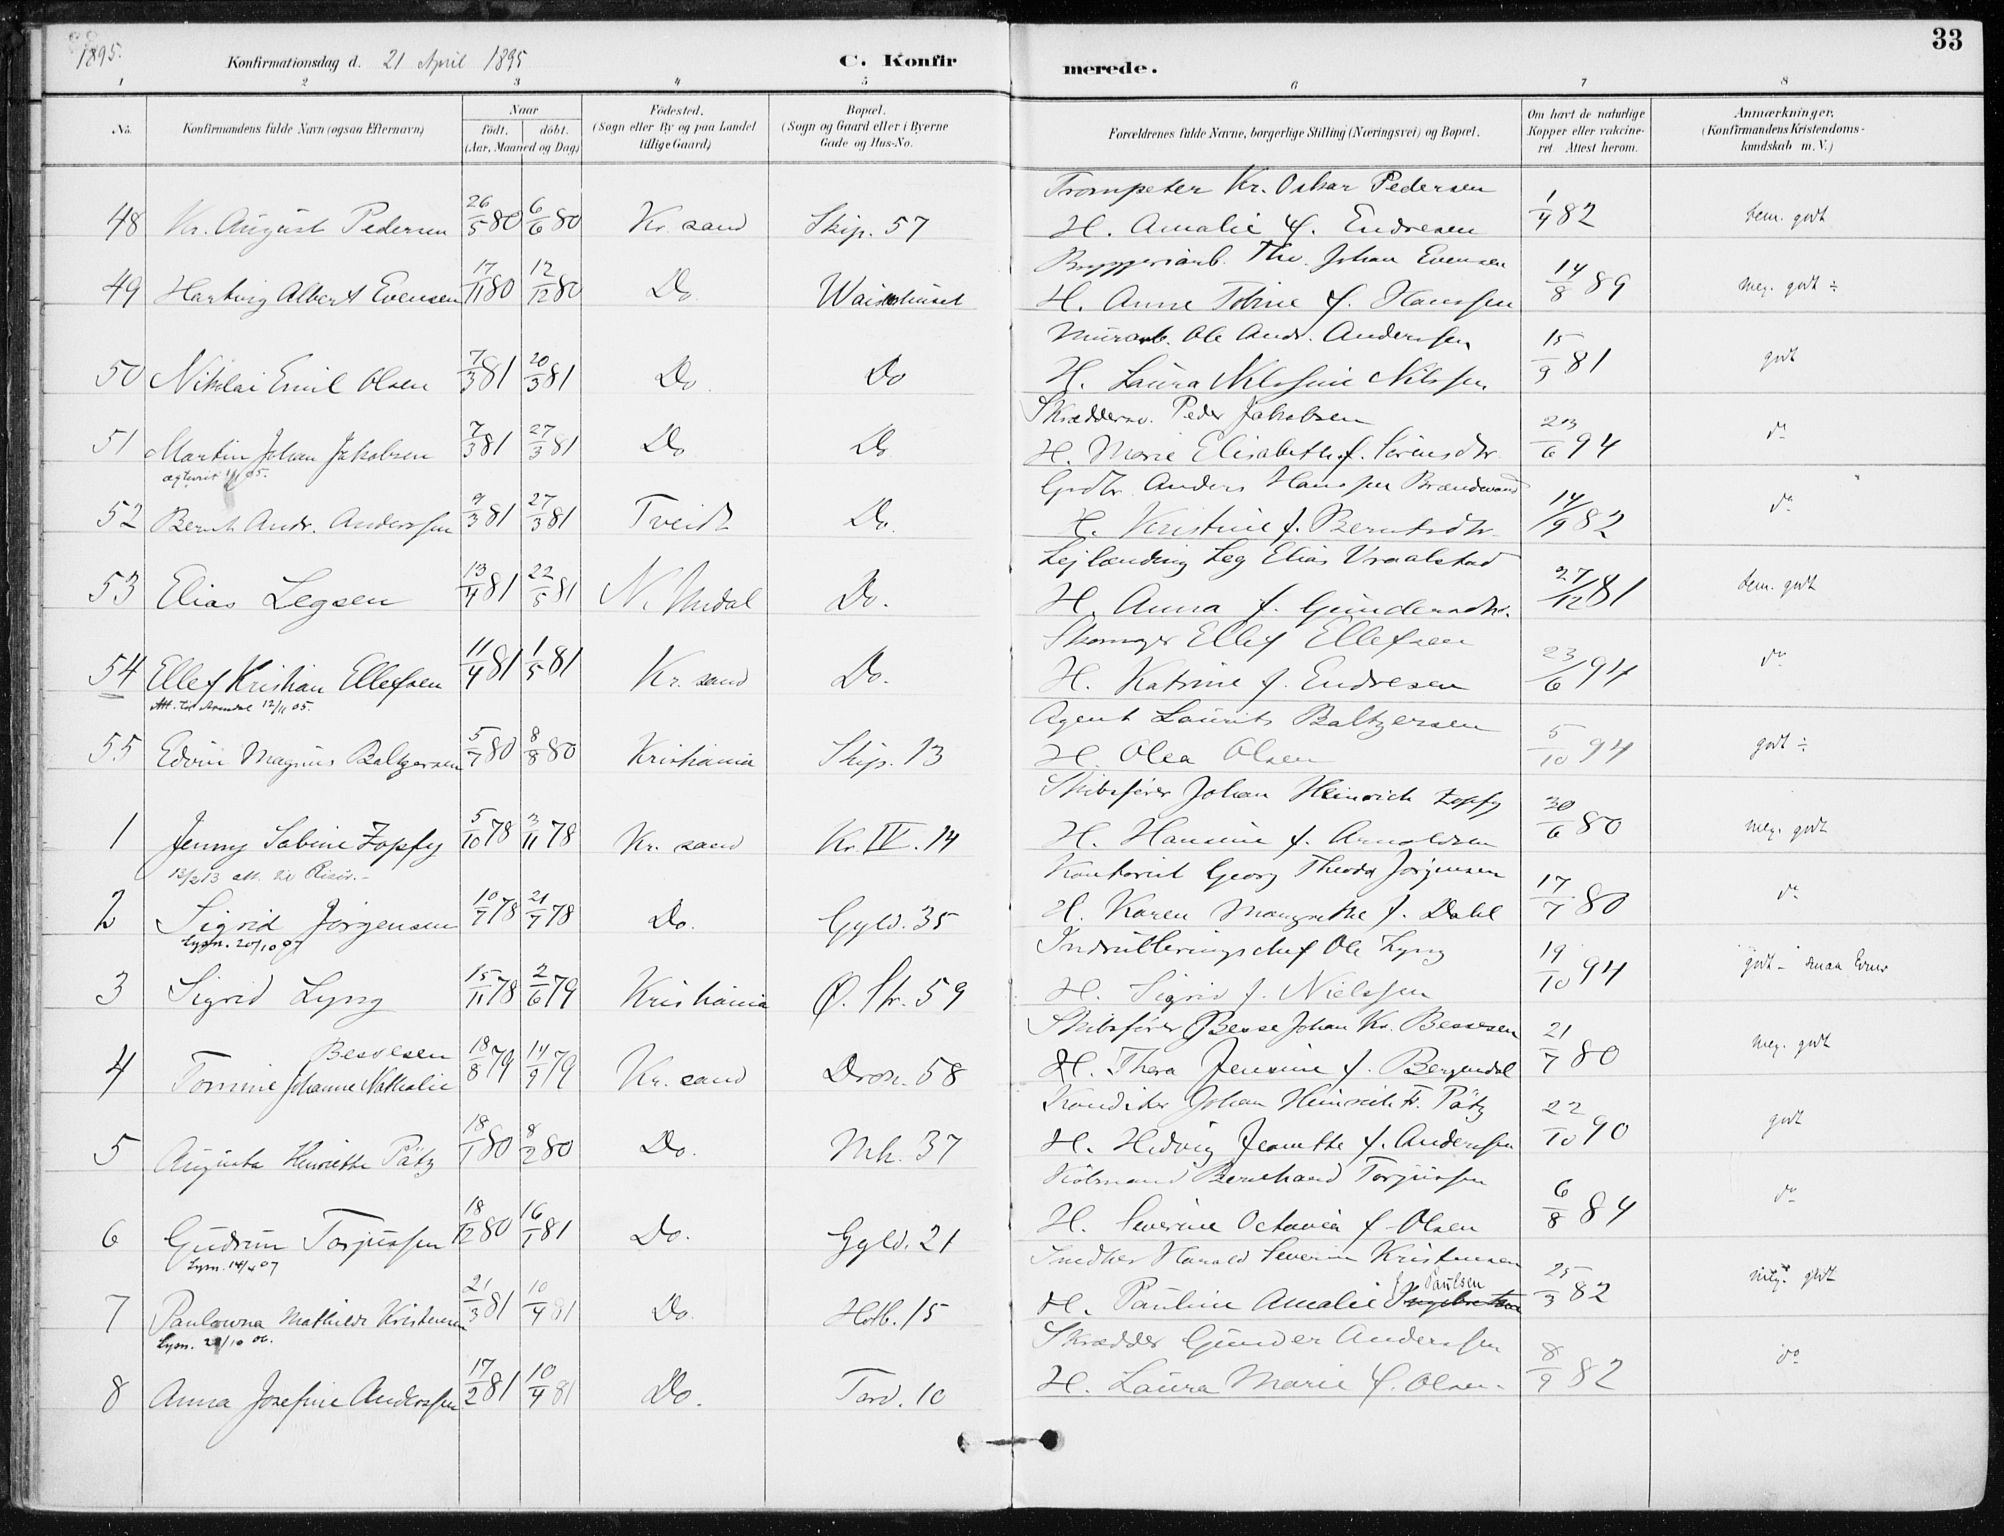 1895.
Konfirmationsdag d. 21 April 1895
C. Konfirmerede.
33
1 2 3 4 5 6 7 8
No.
Konfirmandens fulde Navn (ogsaa Efternavn)
Naar
født. døbt.
(Aar, Maaned og Dag)
Fødested.
(Sogn eller By og paa Landet
tillige Gaard)
Bopæl.
(Sogn og Gaard eller i Byerne
Gade og Hus-No.
Forældrenes fulde Navne, borgerlige Stilling (Næringsvei) og Bopæl.
Om havt de naturlige
Kopper eller vakcine-
ret Attest herom.
Anmærkninger,
(Konfirmandens Kristendoms-
kundskab m. V.)
Trompeter Kr. Oskar Pedersen
48 Kr. August Pedersen 26/5 80 6/6 80 Kr. sand Skip. 57 H. Amalie f. Endresen 1/4 82 tem. godt
Bryggeriarb. Tho. Johan Evensen
49 Hartvig Albert Evensen 17/11 80 12/12 80 Do. Waisenhuset H. Anne Tobine f. Hanssen 14/8 89 meg. godt ÷
Murarb. Ole Andr. Anderssen
50 Nikolai Emil Olsen 7/3 81 20/3 81 Do. Do H. Laura Nilsine Nilssen 15/9 81 godt
Skrædderm. Peder Jakobsen
51 Martin Johan Jakobsen 7/3 81 27/3 81 Do Do H. Marie Elisabeth f. Sörensdtr. 23/6 94 do
Grdbr. Anders Hanssen Brændevand
52 Bernh. Andr. Anderssen 9/3 81 27/3 81 Tveidt Do. H. Kristine f. Berntsdtr. 14/9 82 do
Leilænding Leg Elias Vraalstad
53 Elias Legsen 13/4 81 22/5 81 N. Undal Do. H. Anna f. Gundersdtr. 27/12 81 tem. godt
Skomager Ellef Ellefsen
54 Ellef Kristian Ellefsen 11/4 81 1/5 81 Kr. sand Do. H. Katrine f. Endresen 23/6 94 do
Att. til Arendal 12/11 05.
Agent Laurits Baltzersen
55 Edvin Magnus Baltzersen 5/7 80 8/8 80 Kristiania Skip. 13 H. Olea Olsen 5/10 94 godt ÷
Skibsfører Johan Heinrich Zopfy
1 Jenny Sabine Zopfy 5/10 78 3/11 78 Kr. sand Kr. IV. 14 H. Hansine f. Arnoldsen 30/6 80 meg. godt
13/2 13 att. til Risør. -
Kontorist Georg Theodor Jörgensen
2 Sigrid Jörgensen 10/7 78 21/7 78 Do. Gyld. 35 H. Karen Margrethe f. Dahl 17/7 80 do
Lysn. 20/10 07
Indrulleringschef Ole Lyng
3 Sigrid Lyng 15/11 78 2/6 79 Kristiania Ø. Str. 59 H. Sigrid f. Nielssen 19/10 94 godt -
Besvesen
Skibsfører Besse Johan Kr. Bessesen
4 Tomine Johanne Nathalie 18/8 79 14/9 79 Kr. sand Dron. 58 H. Thora Jensine f. Bergendal 21/7 80 meg. godt
Konditor Johan Heinrich Fr. Pätz
5 Augusta Henriette Pätz 18/1 80 8/2 80 Do. Mk. 37 H. Hedvig Jeanette f. Anderssen 22/10 90 godt
Kiöbmand Bernhard Torjussen
6 Gudrun Torjussen 18/12 80 16/1 81 Do. Gyld. 21 H. Severine Octavia f. Olsen 6/8 84 do
Lysn. 14/4 07
Snedker Harald Severin Kristensen
f. Paulsen
7 Paulowna Mathilde Kristensen 21/3 81 10/4 81 Do. Holb. 15 H. Pauline Amalie 25/3 82 meg. godt
Skrædder Gunder Anderssen
8 Anna Josefine Anderssen 17/2 81 10/4 81 Do. Tord. 10 H. Laura Marie f. Olsen. 8/9 82 do